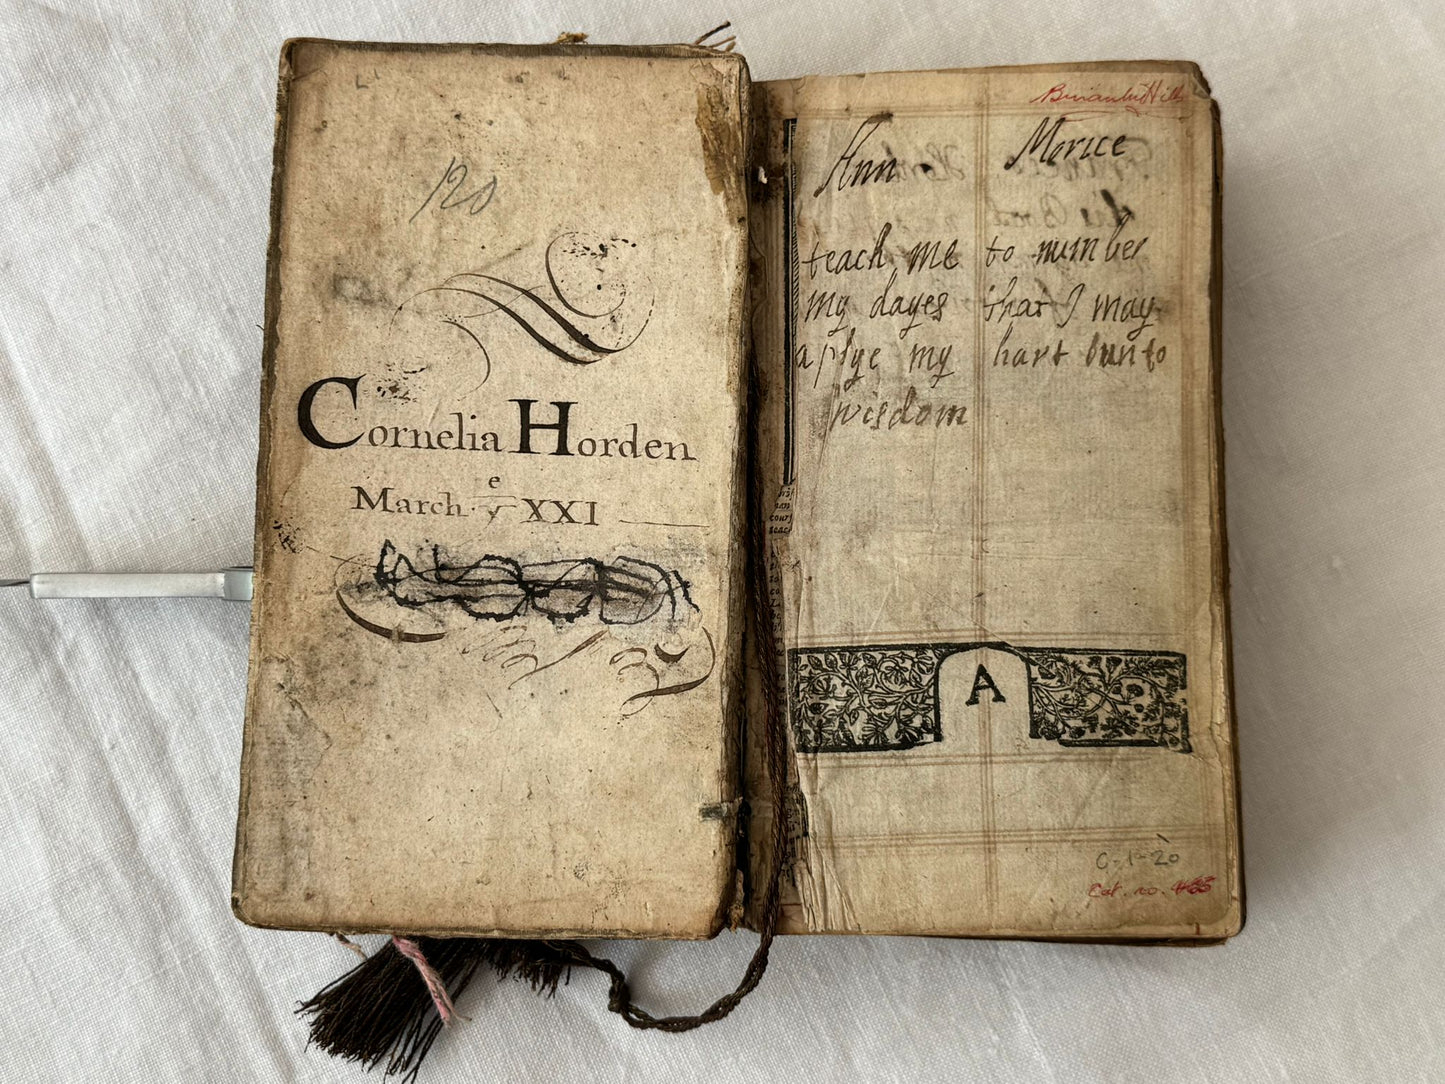 120
Cornelia Horden
March yᵉ XXI
Ann Morice
teach me to number
my dayes that I may
aplye my hart vunto
wisdom
A
C-1-20
Cat. no.